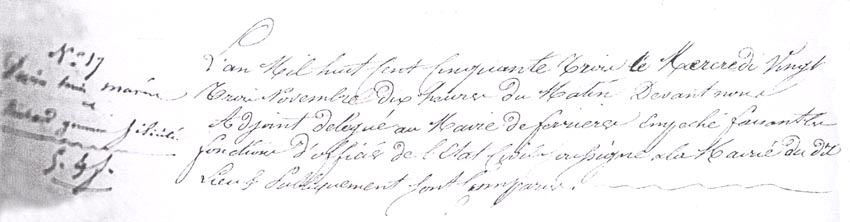 N.º 17
marie
et
L'an Mil huit Cent Cinquante Trois le Mercredi Vingt
Trois Novembre dix heures du Matin Devant nous
Adjoint délégué au Maire de ferrieres Empeché faisant les
fonctions d'officier de l'Etat Civil a la Mairie du dit
Lieu & Publiquement sont Comparus.